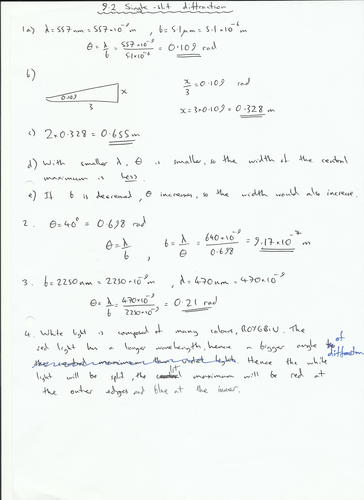 9.2 Single-slit diffraction
1a) λ = 557 nm = 557×10⁻⁹ m , b = 5.1 μm = 5.1×10⁻⁶ m
θ = λ/b = 557×10⁻⁹/5.1×10⁻⁶ = 0.109 rad
b)
0.109
x
3
x/3 = 0.109 rad
x = 3×0.109 = 0.328 m
c) 2×0.328 = 0.655 m
d) With smaller λ, θ is smaller, so the width of the central
maximum is less.
e) If b is decreased, θ increases, so the width would also increase.
2. θ = 40° = 0.698 rad
θ = λ/b , b = λ/θ = 640×10⁻⁹/0.698 = 9.17×10⁻⁷ m
3. b = 2230 nm = 2230×10⁻⁹ m , λ = 470 nm = 470×10⁻⁹
θ = λ/b = 470×10⁻⁹/2230×10⁻⁹ = 0.21 rad
4. White light is composed of many colours, ROYGBIV. The
red light has a longer wavelength, hence a bigger angle of diffraction
the central maximum than violet light. Hence the white
light will be split, the maximum will be red at
the outer edges and blue at the inner.